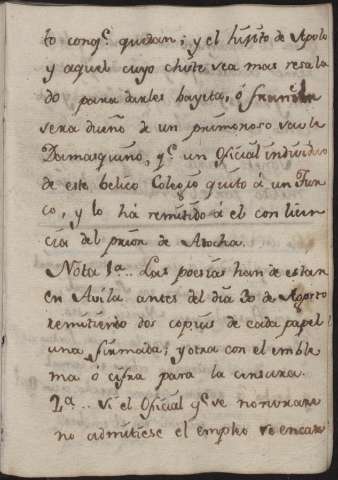 to congᵉ quedan; y el hijito de Apolo
y aquel cuyo chiste sea mas resala
do para darles bayeta, ó
sera dueño de un primoroso sable
Damasquino, qᵉ un Oficial individuo
de este belico Colegio quitó á un Tur
co, y lo há remitido á el con licen
cia del prior de Atocha.
Nota 1ª.. Las poesías han de estar
en Avila antes del dia 30 de Agosto
remitiendo dos copias de cada papel
una firmada; y otra con el emble
ma ó cifra para la censura.
2ª.. Si el Oficial qᵉ se nombrare
no admitiese el empleo se encar